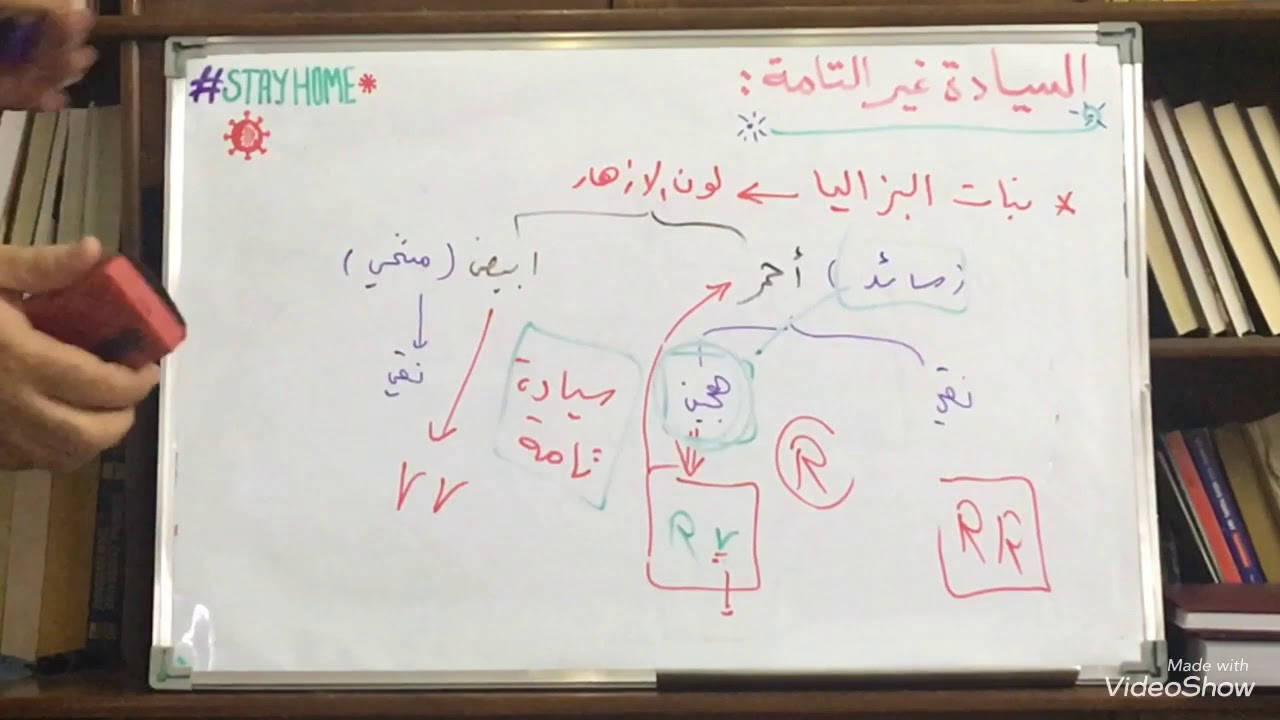 #STAYHOME*
السيادة غير التامة :
* نبات البزاليا ← لون الازهار
(سائد) أحمر
ابيض (متنحي)
نقي
هجين
نقي
سيادة
تامة
R
rr
Rr
RR
Made with
VideoShow